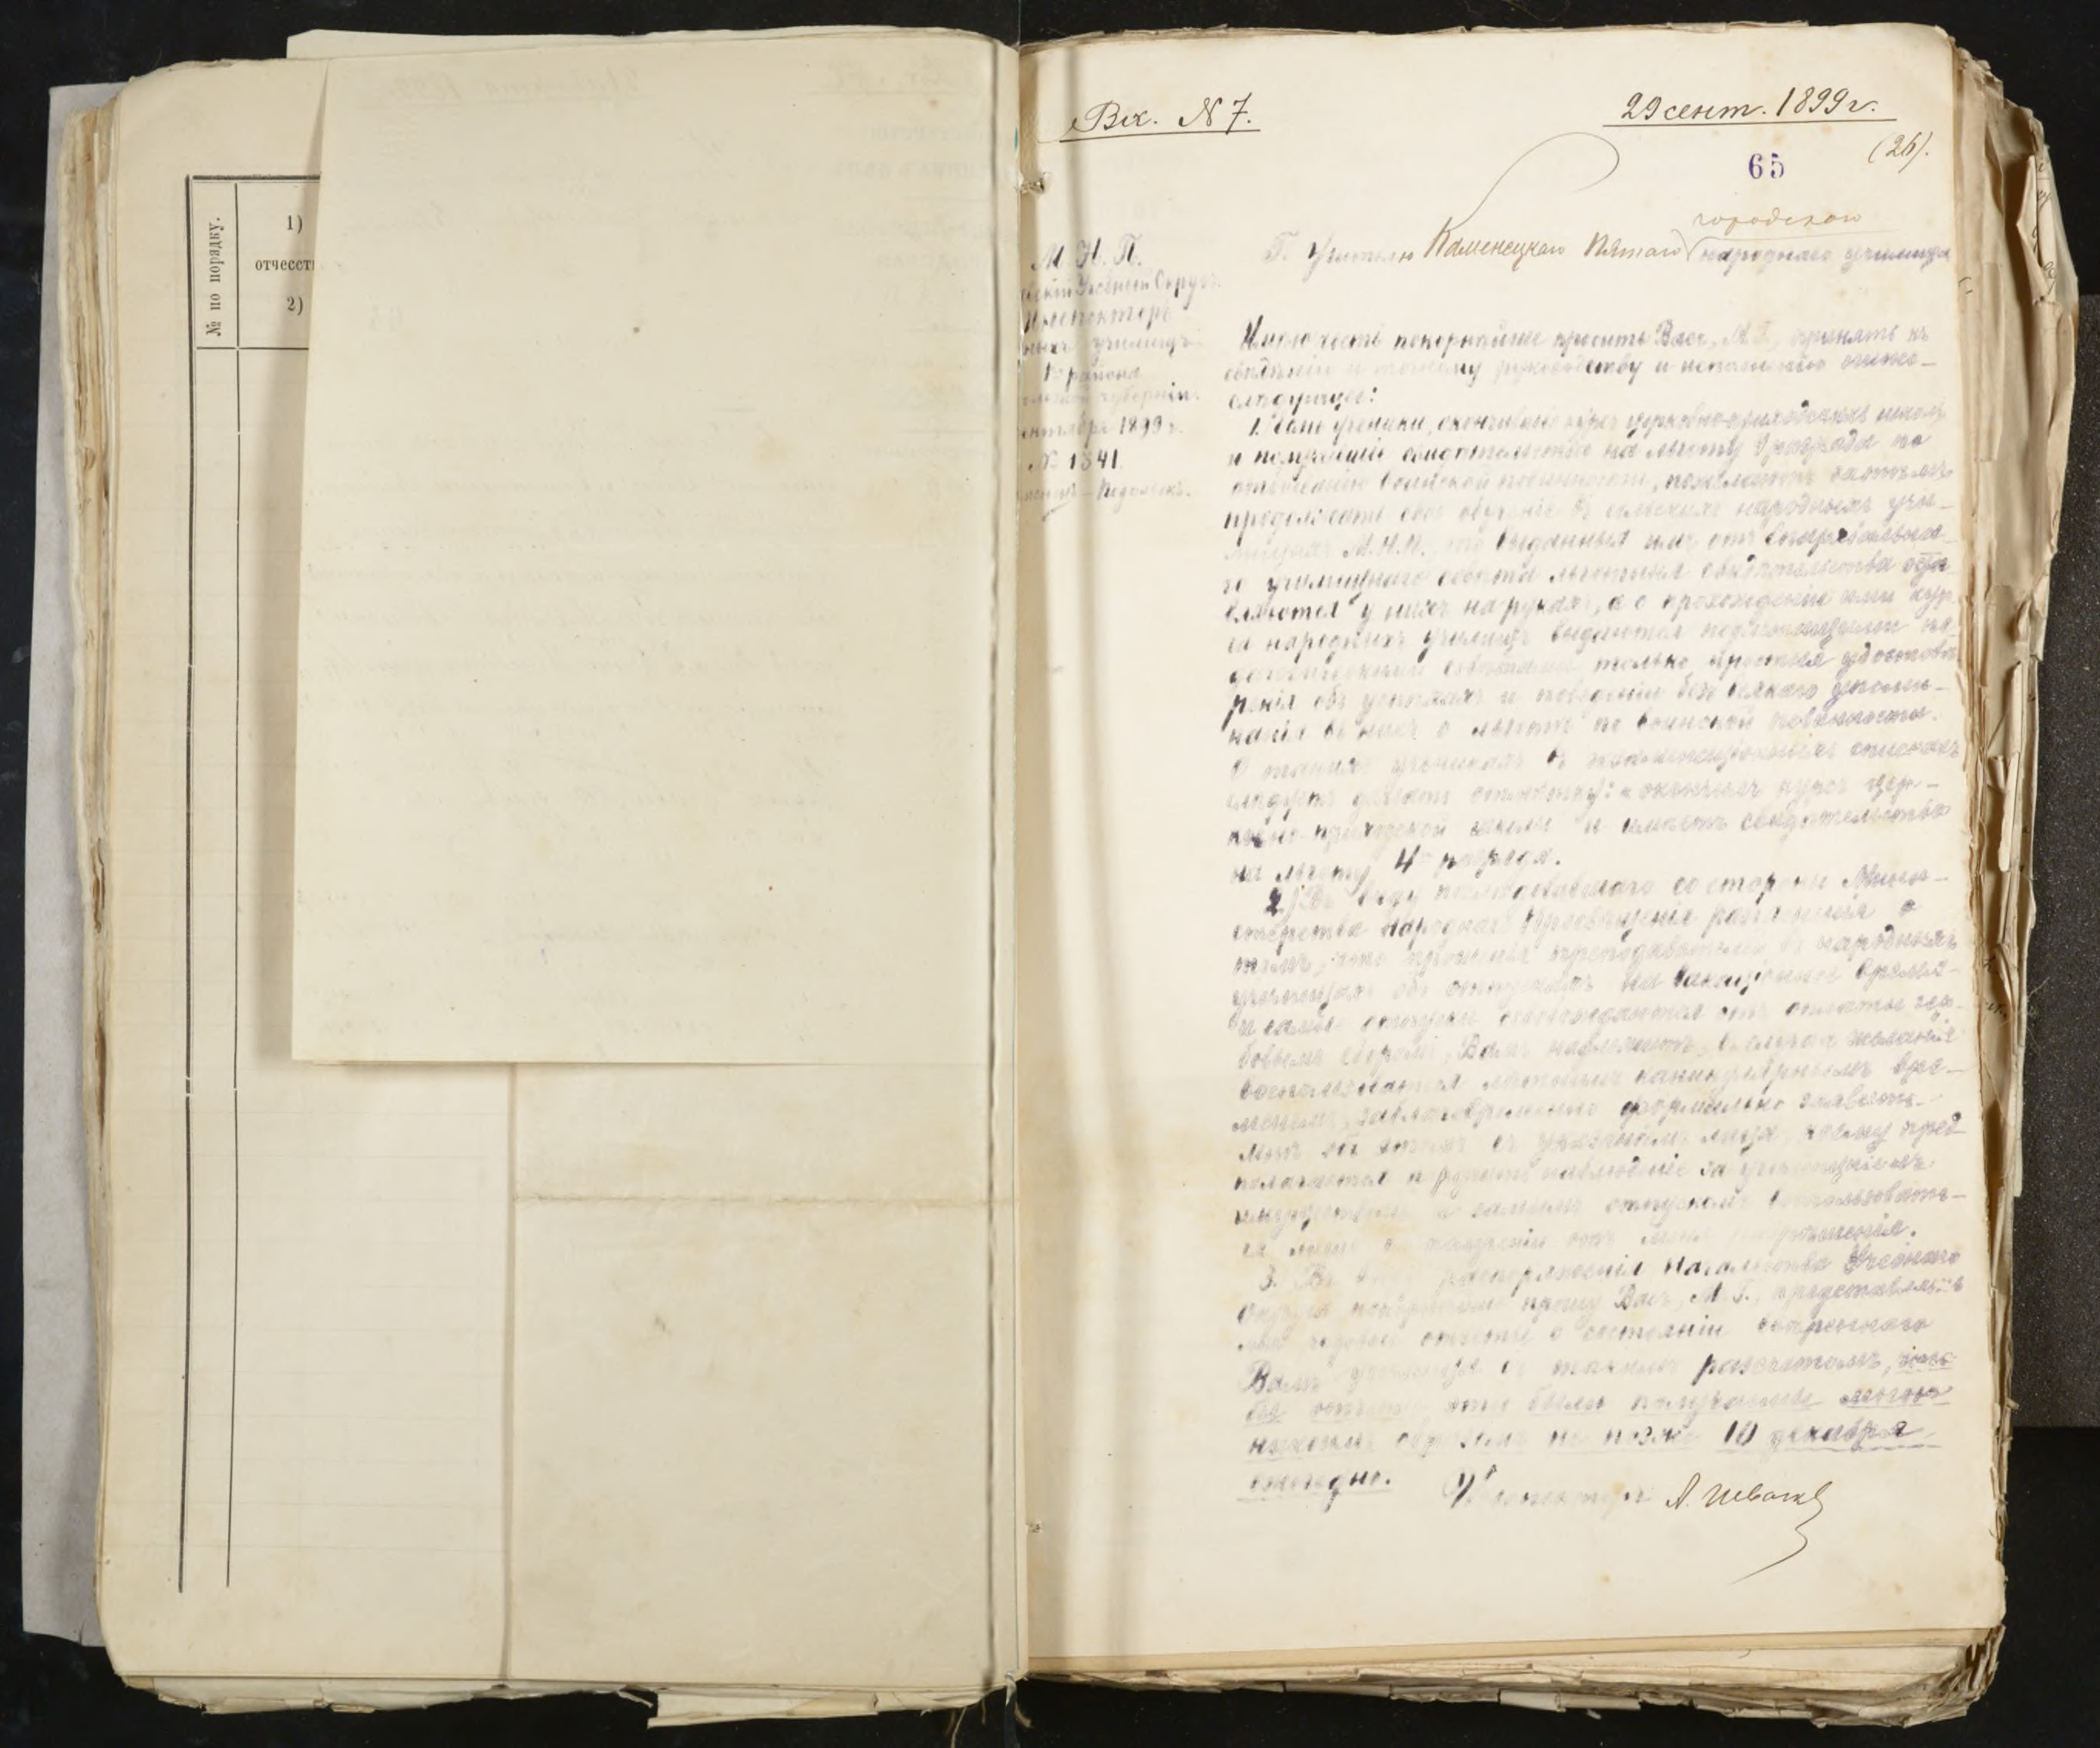 № по порядку.
1)
отчеств
2)
Вх. N 7.
29 сент. 1899 г.
65
(26).
М. Н. П.
Учебный Округъ.
Инспекторъ
училищъ
1го района
губерніи.
1899 г.
№ 1341
Подольскъ.
городского
Г. Учителю Каменецкаго Пятаго народнаго училища
Имѣю честь покорнѣйше просить Васъ, М. Г., принять къ
свѣдѣнію и точному руководству и исполненію ниже-
слѣдующее:
1. Если ученики, окончившіе курсъ церковно-приходскихъ школъ
и получившіе свидѣтельство на льготу 4 разряда по
отбыванію воинской повинности, пожелаютъ затѣмъ
продолжать свое обученіе въ сельскихъ народныхъ учи-
лищахъ М.Н.П., то выданныя имъ отъ Епархіальна-
го училищнаго совѣта льготныя свидѣтельства оста-
вляются у нихъ на рукахъ, а о прохожденіи ими кур-
са народныхъ училищъ выдаются подлежащими пе-
дагогическими совѣтами только простыя удостовѣ-
ренія объ успѣхахъ и поведеніи безъ всякаго упоми-
нанія въ нихъ о льготѣ по воинской повинности.
О такихъ ученикахъ въ экзаменаціонныхъ спискахъ
слѣдуетъ дѣлать отмѣтку: "окончилъ курсъ цер-
ковно-приходской школы и имѣетъ свидѣтельство
на льготу 4го разряда.
2) Въ виду послѣдовавшаго со стороны Мини-
стерства Народнаго Просвѣщенія разъясненія о
томъ, что прошенія преподавателей въ народныхъ
училищахъ объ отпускахъ на вакаціонное время
и самые отпуски освобождаются отъ оплаты гер-
бовымъ сборомъ, Вамъ надлежитъ, въ случаѣ желанія
воспользоваться лѣтнимъ каникулярнымъ вре-
менемъ, заблаговременно формально заявить
мнѣ объ этомъ съ указаніемъ лица, коему пред-
полагается поручить наблюденіе за училищнымъ
имуществомъ, и самымъ отпускомъ воспользовать-
ся лишь по полученіи отъ меня разрѣшенія.
3. Въ виду распоряженія Начальства Учебнаго
Округа покорнѣйше прошу Васъ, М. Г., представлять
мнѣ годовые отчеты о состояніи ввѣреннаго
Вамъ училища съ такимъ разсчетомъ, что-
бы отчеты эти были получаемы мною
никоимъ образомъ не позже 10 декабря
ежегодно.
Инспекторъ